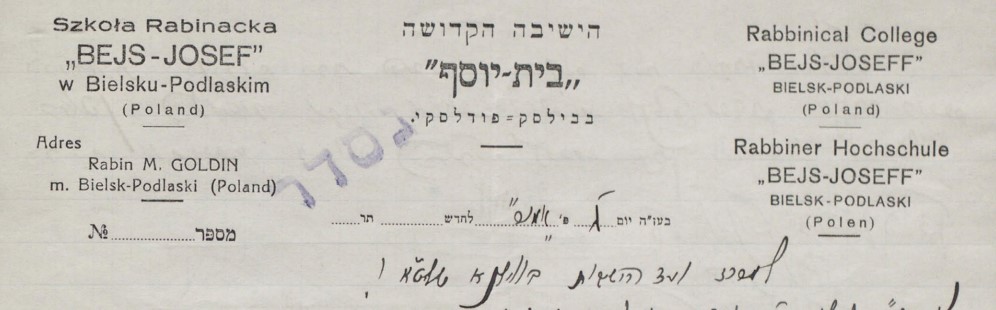 Szkoła Rabinacka
„BEJS-JOSEF”
w Bielsku-Podlaskim
(Poland)
Adres
Rabin M. GOLDIN
m. Bielsk-Podlaski (Poland)
№ מספר
הישיבה הקדושה
„בית-יוסף”
בבילסק=פודלסקי.
נסדר
בעז"ה יום ג פ' לחדש תר
Rabbinical College
„BEJS-JOSEFF”
BIELSK-PODLASKI
(Poland)
Rabbiner Hochschule
„BEJS-JOSEFF”
BIELSK-PODLASKI
(Polen)
ועד הישיבות בווילנא